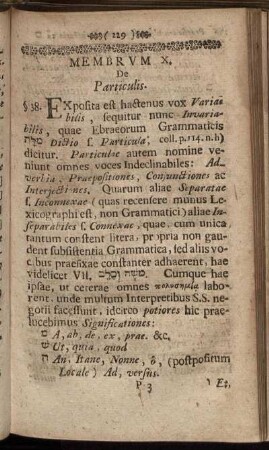 ( 129 )
MEMBRVM X.
De
Particulis.
§ 38. EXposita est hactenus vox Variabilis,
sequitur nunc Invariabilis,
quae Ebraeorum Grammaticis
מלה Dictio s. Particula, coll. p. 114. n. h)
dicitur. Particulae autem nomine veniunt
omnes voces indeclinabiles: Adverbia,
Praepositiones, Conjunctiones ac
Interjectiones, Quarum aliae Separatae
s. Inconnexae (quas recensere munus Lexicographi
est, non Grammatici) aliae Inseparabiles
s. Connexae, quae, cum unica
tantum constent litera, propria non gaudent
subsistentia Grammatica, sed aliis vocibus
praefixae constanter adhaerent, hae
videlicet VII. משה וכלב Cumque hae
ipsae, ut ceterae omnes πολυσημία laborent,
unde multum Interpretibus S.S. negotii
facessunt, ideirco potiores hic praelucebimus
Significationes:
מ A, ab, de, ex, prae. &c.
ש Ut, quia, quod
ה An, Itane, Nonne, ὁ, (postpositum
Locale) Ad, versus.
P 3 ו Et,